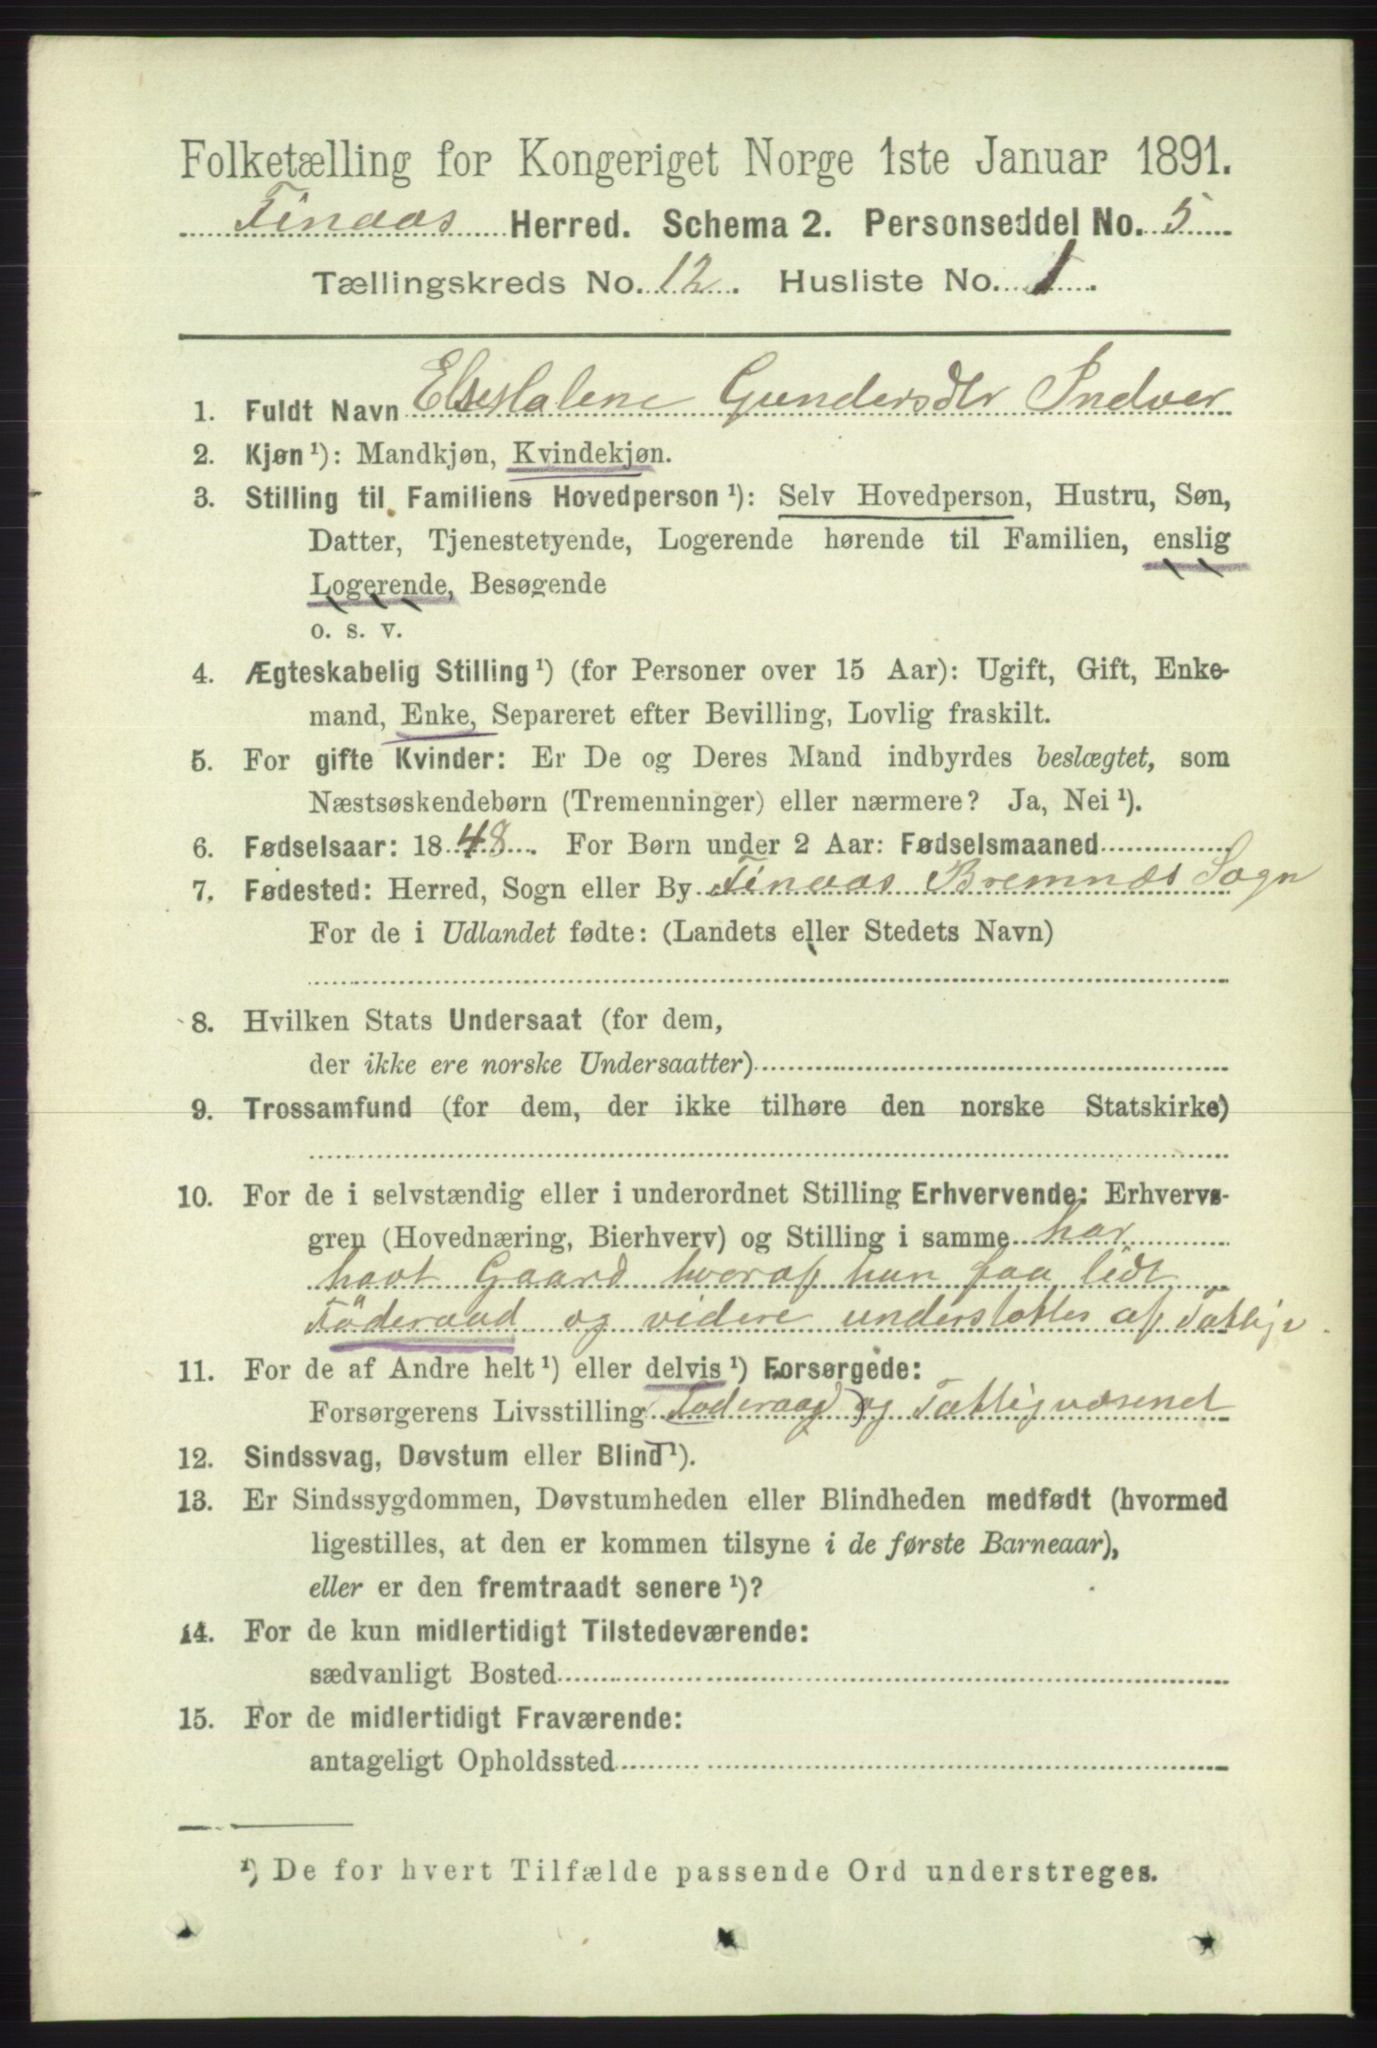 Folketælling for Kongeriget Norge 1ste Januar 1891.
Finaas Herred. Schema 2. Personseddel No. 5
Tællingskreds No. 12. Husliste No. 1.
1. Fuldt Navn Else Malene Gundersdtr Indvær
2. Kjøn ¹): Mandkjøn, Kvindekjøn.
3. Stilling til Familiens Hovedperson ¹): Selv Hovedperson, Hustru, Søn,
Datter, Tjenestetyende, Logerende hørende til Familien, enslig
Logerende, Besøgende
o. s. v.
4. Ægteskabelig Stilling ¹) (for Personer over 15 Aar): Ugift, Gift, Enke-
mand, Enke, Separeret efter Bevilling, Lovlig fraskilt.
5. For gifte Kvinder: Er De og Deres Mand indbyrdes beslægtet, som
Næstsøskendebørn (Tremenninger) eller nærmere? Ja, Nei ¹).
6. Fødselsaar: 1848. For Børn under 2 Aar: Fødselsmaaned
7. Fødested: Herred, Sogn eller By Finaas Bremnæs Sogn
For de i Udlandet fødte: (Landets eller Stedets Navn)
8. Hvilken Stats Undersaat (for dem,
der ikke ere norske Undersaatter)
9. Trossamfund (for dem, der ikke tilhøre den norske Statskirke)
10. For de i selvstændig eller i underordnet Stilling Erhvervende: Erhvervs-
gren (Hovednæring, Bierhverv) og Stilling i samme har
havt Gaard hvoraf hun faa lidt
Föderaad og videre understöttes af
11. For de af Andre helt ¹) eller delvis ¹) Forsørgede:
Forsørgerens Livsstilling Föderaad og Fattigvæsenet
12. Sindssvag, Døvstum eller Blind ¹).
13. Er Sindssygdommen, Døvstumheden eller Blindheden medfødt (hvormed
ligestilles, at den er kommen tilsyne i de første Barneaar),
eller er den fremtraadt senere ¹)?
14. For de kun midlertidigt Tilstedeværende:
sædvanligt Bosted
15. For de midlertidigt Fraværende:
antageligt Opholdssted
¹) De for hvert Tilfælde passende Ord understreges.